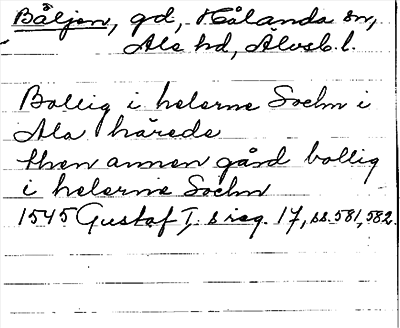 Båljen, gd, Hålanda sn,
Ale hd, Älvsb. l.
Bollig i helerne Sochn i
Ala härede
then annen gård bollig
i helerne Sochn
1545 Gustaf I:s reg. 17, ss. 581, 582.